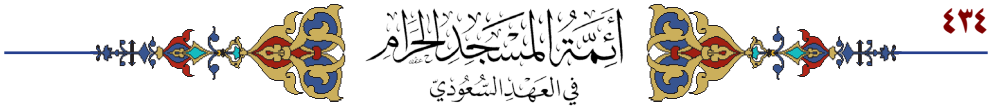 ٤٣٤
أَئِمَّةُ المَسْجِدِ الحَرَامِ
فِي العَهْدِ السُّعُودِيِّ